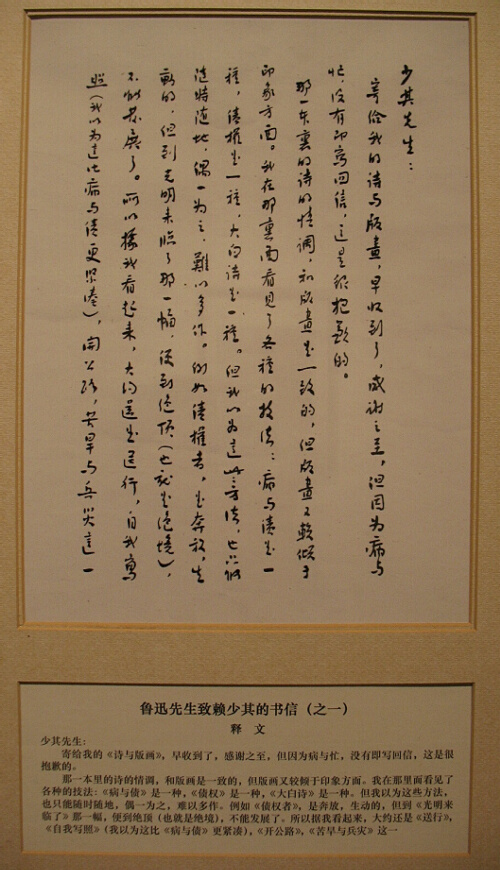 少其先生：
寄給我的詩与版畫，早收到了，感谢之至，但因为病与
忙，没有即寫回信，這是很抱歉的。
那一本裏的詩的情調，和版畫是一致的，但版畫又較傾于
印象方面。我在那裏面看見了各種的技法：病与債是一
種，債權是一種，大白詩是一種。但我以为這些方法，也只能
隨時隨地，偶一为之，難以多作。例如債權者，是奔放，生
動的，但到光明来臨了那一幅，便到絕頂（也就是絕境），
不能發展了。所以據我看起来，大約還是送行，自我寫
照（我以为這比病与債更緊凑），開公路，苦旱与兵災這一
鲁迅先生致赖少其的书信（之一）
释 文
少其先生：
寄给我的《诗与版画》，早收到了，感谢之至，但因为病与忙，没有即写回信，这是很
抱歉的。
那一本里的诗的情调，和版画是一致的，但版画又较倾于印象方面。我在那里面看见了
各种的技法：《病与债》是一种，《债权》是一种，《大白诗》是一种。但我以为这些方法，
也只能随时随地，偶一为之，难以多作。例如《债权者》，是奔放，生动的，但到《光明来
临了》那一幅，便到绝顶（也就是绝境），不能发展了。所以据我看起来，大约还是《送行》，
《自我写照》（我以为这比《病与债》更紧凑），《开公路》，《苦旱与兵灾》这一